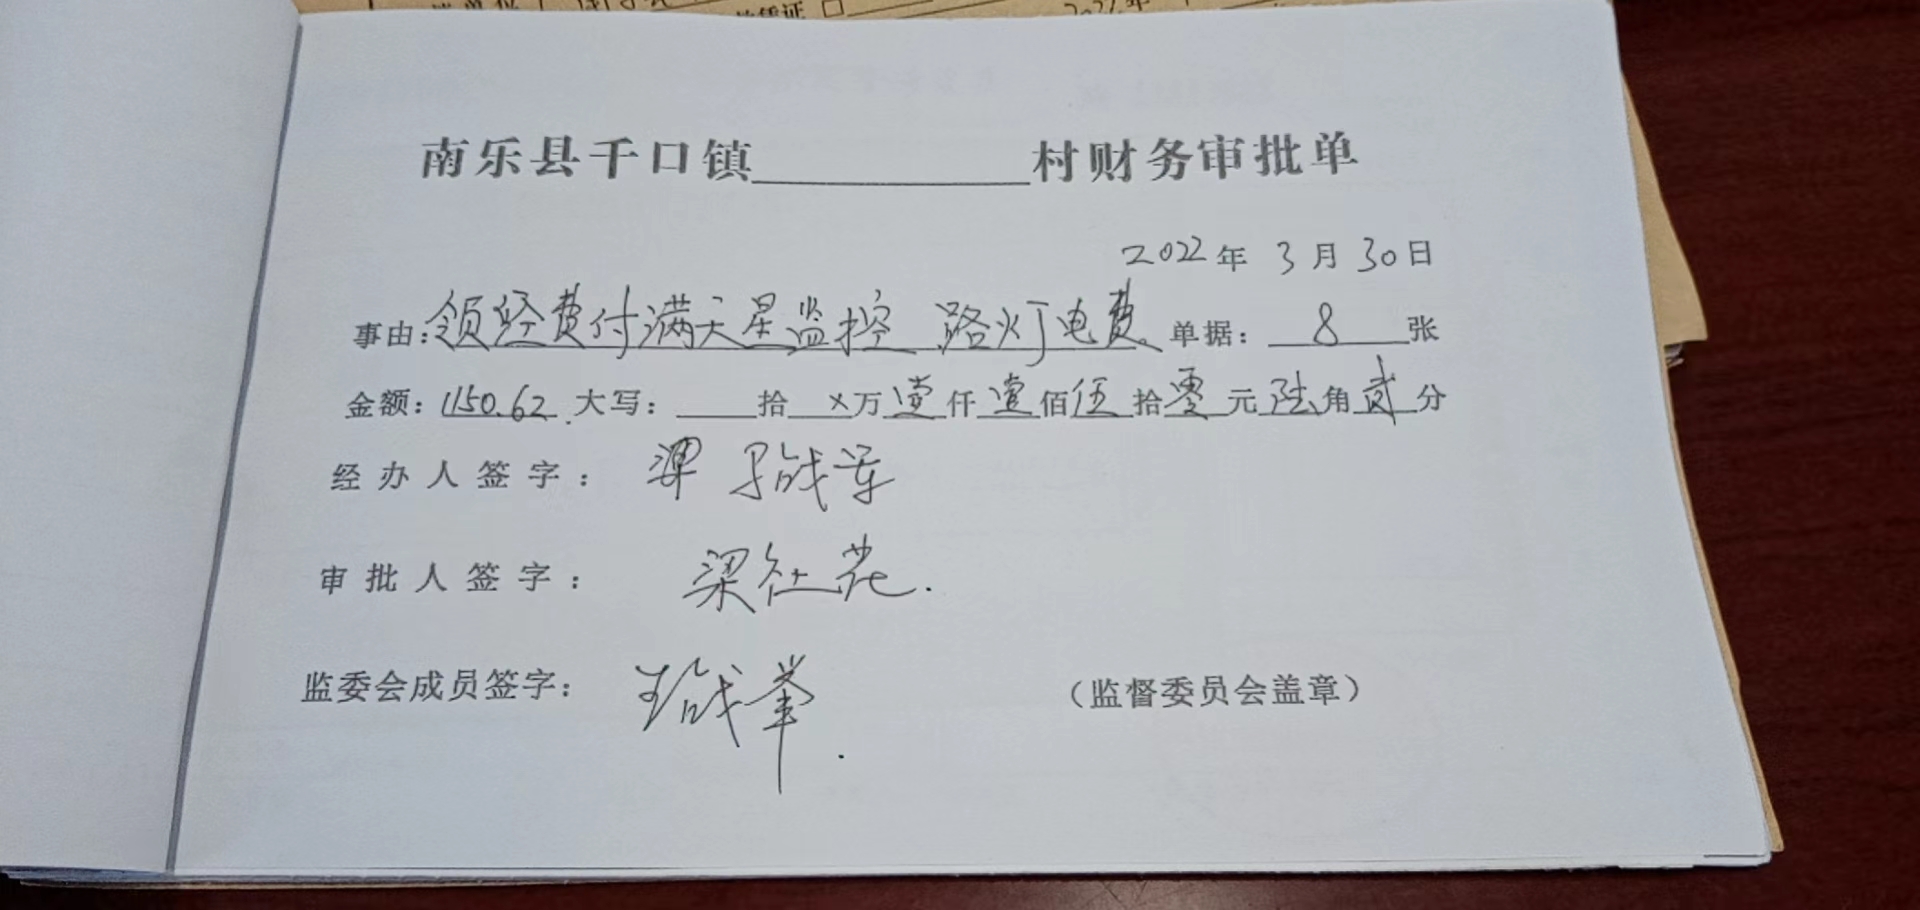 南乐县千口镇__________村财务审批单
2022年 3月 30日
事由:领经费付满天星监控 路灯电费. 单据: 8 张
金额: 1150.62. 大写: 拾 ×万 壹仟 壹佰 伍拾 零元 陆角 贰分
经办人签字:
审批人签字: 梁社花.
监委会成员签字:
(监督委员会盖章)